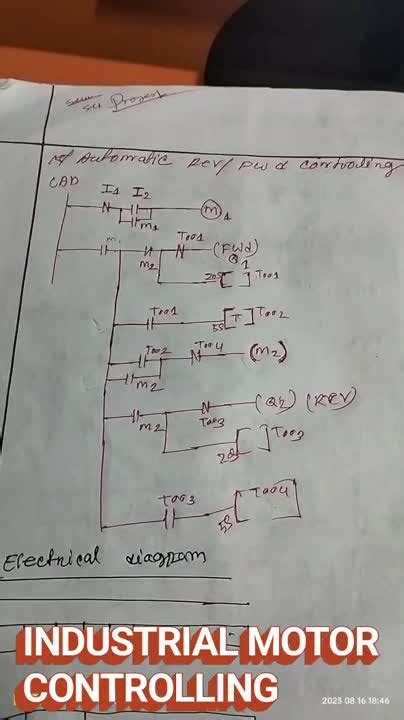 Project
Automatic REV/FWd controlling
LAD
I1 I2
M1
M1
M1 M2 T001 (FWd)
Q1
20S T001
T001 5S T T002
T002 T004 (M2)
M2
M2 T003 (Q2) (REV)
T003
20
T003 5S T004
Electrical diagram
INDUSTRIAL MOTOR
CONTROLLING
2023 08 16 18:46